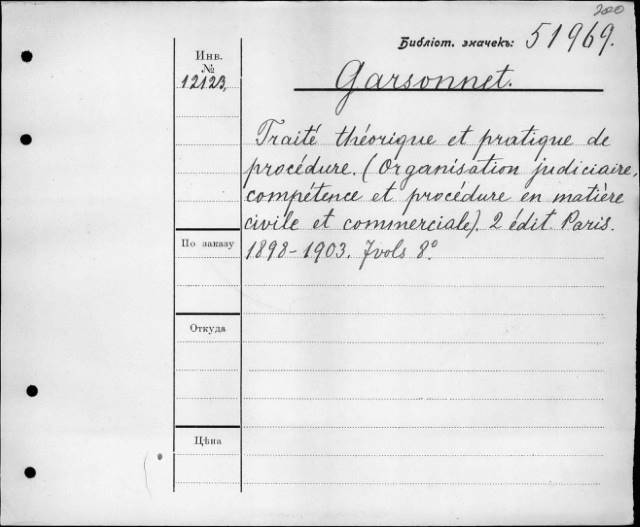 200
Библіот. значекъ: 51969.
Инв.
№
12123,
Garsonnet.
Traité théorique et pratique de
procédure. (Organisation judiciaire,
compétence et procédure en matière
civile et commerciale). 2 édit. Paris.
1898-1903. 7vols 8°
По заказу
Откуда
Цѣна